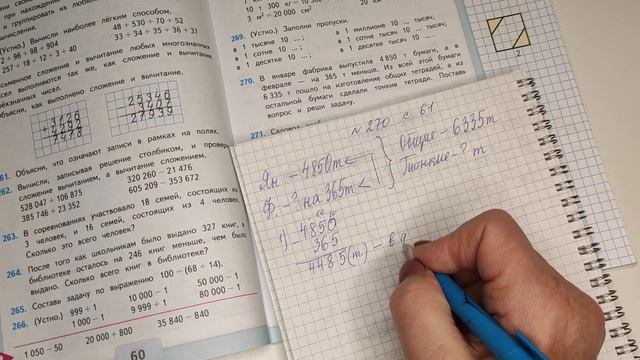 (Устно.) Вычисли наиболее лёгким способом.
2 + 96 + 98 + 904
48 + 530 + 70 + 52
257 + 18 + 12 + 3 + 40
33 + 34 + 35 + 36 + 37
Письменное сложение и вычитание любых многозначных
чисел выполняются так же, как сложение и вычитание
трёхзначных чисел.
Объясни, как выполнено сложение и вычитание.
25346
27939
Объясни, что означают записи в рамках на полях.
262. Вычисли, записывая решение столбиком, и проверь
сложение вычитанием, а вычитание сложением.
528 047 + 106 875
320 260 − 21 476
385 746 + 23 352
605 209 − 353 672
263. В соревнованиях участвовало 18 семей, состоящих из
3 человек, и 16 семей, состоящих из 4 человек.
Сколько это всего человек?
264. После того как школьникам было выдано 327 книг, в
библиотеке осталось на 246 книг меньше, чем было
выдано. Сколько всего книг в библиотеке?
265. Составь задачу по выражению 100 − (68 + 14).
266. (Устно.) 999 + 1
10 000 − 1
50 000 − 1
1 000 − 1
9 999 + 1
80 000 − 1
1 050 − 50
20 000 + 800
35 840 − 840
60
3 м² = 20 000 см²
269. (Устно.) Заполни пропуски.
в 1 тысяче 10 ... ;
в 1 сотне 10 ... ;
в 1 десятке 10 ... ;
в 1 миллионе 10 ... тысяч;
в 1 сотне тысяч 10 ... тысяч;
в 1 десятке тысяч 10 ... .
270. В январе фабрика выпустила 4 850 т бумаги, а в
феврале — на 365 т меньше. Из всей этой бумаги
6 335 т пошло на изготовление общих тетрадей, а из
остальной бумаги сделали тонкие тетради. Поставь
вопрос и реши задачу.
271.
2
№ 270 с 61
Ян. – 4850т
Ф. – ? на 365т <
Общие – 6335т
Тонкие – ? т
1) – 4850
365
4485 (т) – в ф